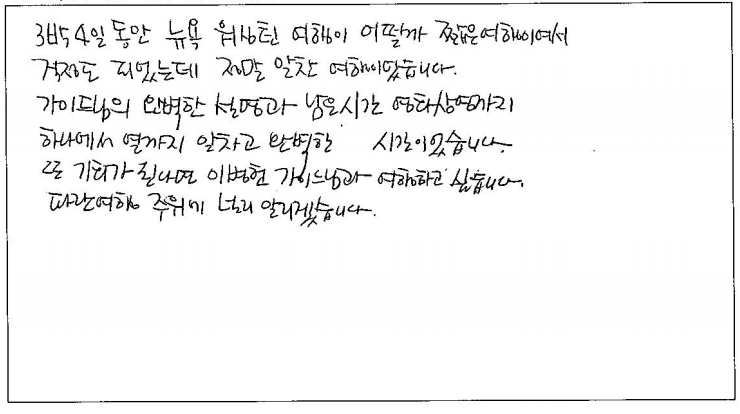 3박4일 동안 뉴욕 워싱턴 여행이 어떨까 짧은여행이여서
걱정도 되었는데 정말 알찬 여행이었습니다.
가이드님의 완벽한 설명과 남은시간 영화상영까지
하나에서 열까지 알차고 완벽한 시간이었습니다.
또 기회가 된다면 이병헌 가이드님과 여행하고 싶습니다.
파란여행 주위에 널리 알리겠습니다.